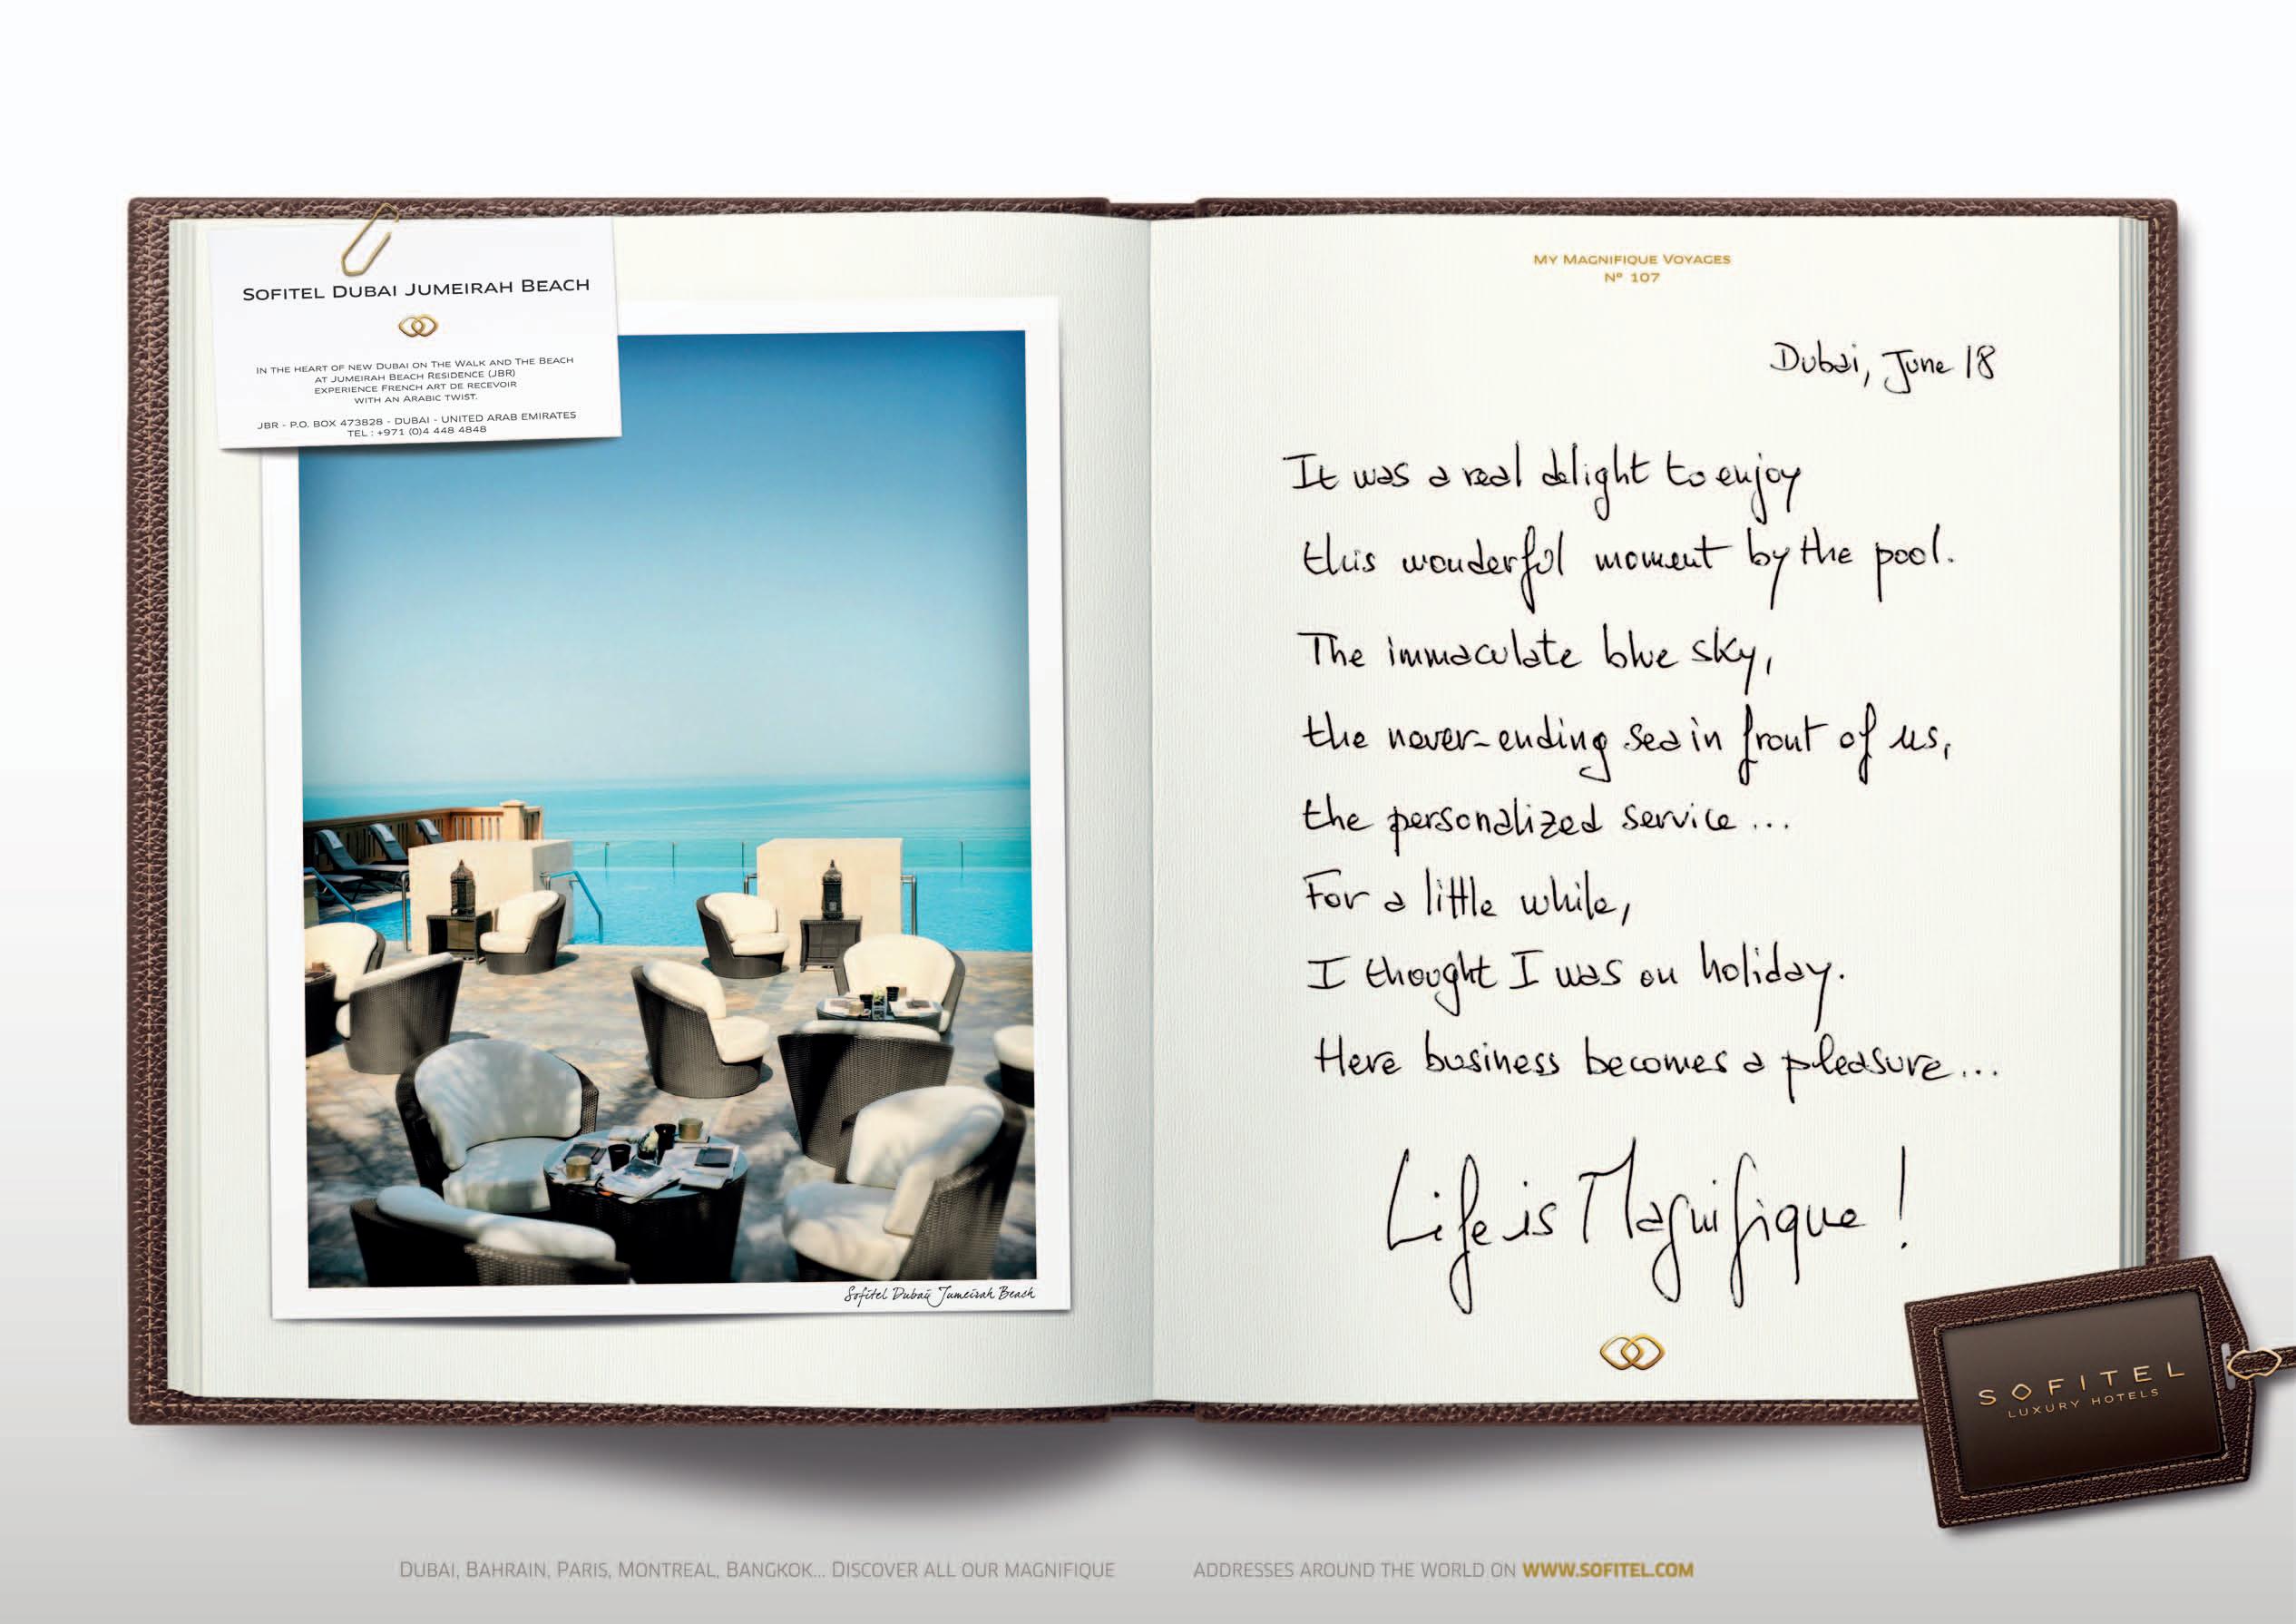 SOFITEL DUBAI JUMEIRAH BEACH
IN THE HEART OF NEW DUBAI ON THE WALK AND THE BEACH
AT JUMEIRAH BEACH RESIDENCE (JBR)
EXPERIENCE FRENCH ART DE RECEVOIR
WITH AN ARABIC TWIST.
JBR - P.O. BOX 473828 - DUBAI - UNITED ARAB EMIRATES
TEL : +971 (0)4 448 4848
Sofitel Dubai Jumeirah Beach
MY MAGNIFIQUE VOYAGES
Nº 107
Dubai, June 18
It was a real delight to enjoy
this wonderful moment by the pool.
The immaculate blue sky,
the never-ending sea in front of us,
the personalized service...
For a little while,
I thought I was on holiday.
Here business becomes a pleasure...
Life is Magnifique !
SOFITEL
LUXURY HOTELS
DUBAI, BAHRAIN, PARIS, MONTREAL, BANGKOK... DISCOVER ALL OUR MAGNIFIQUE ADDRESSES AROUND THE WORLD ON WWW.SOFITEL.COM